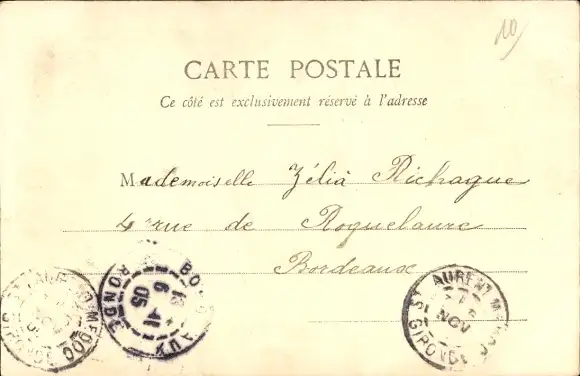 10
CARTE POSTALE
Ce côté est exclusivement réservé à l'adresse
Mademoiselle Zélia Richaque
4 rue de Roquelaure
Bordeaux
MEDOC
BO UX
GIRONDE
6
05
ST LAURENT MEDOC
NOV
GIRONDE